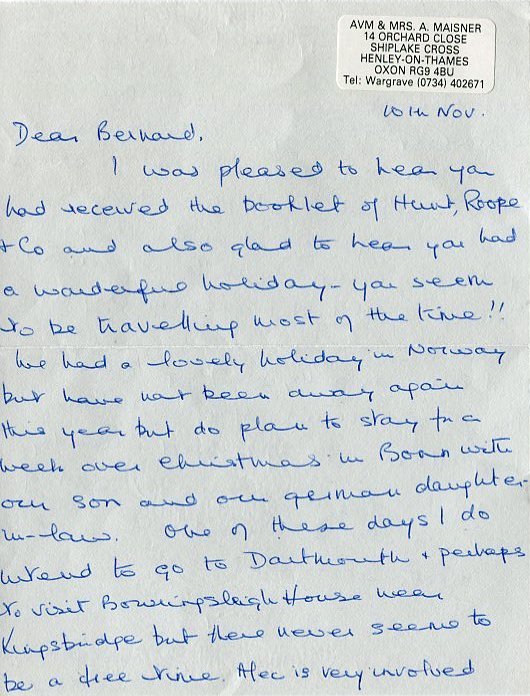 AVM & MRS. A. MAISNER
14 ORCHARD CLOSE
SHIPLAKE CROSS
HENLEY-ON-THAMES
OXON RG9 4BU
Tel: Wargrave (0734) 402671
10th Nov.
Dear Bernard,
I was pleased to hear you
had received the booklet of Hunt, Roope
+ Co and also glad to hear you had
a wonderful holiday - you seem
to be travelling most of the time!!
We had a lovely holiday in Norway
but have not been away again
this year but do plan to stay for a
week over Christmas in Bonn with
our son and our german daughter-
in-law. One of these days I do
intend to go to Dartmouth + perhaps
to visit Bowringsleigh House near
Kingsbridge but there never seems to
be a free time. Alec is very involved